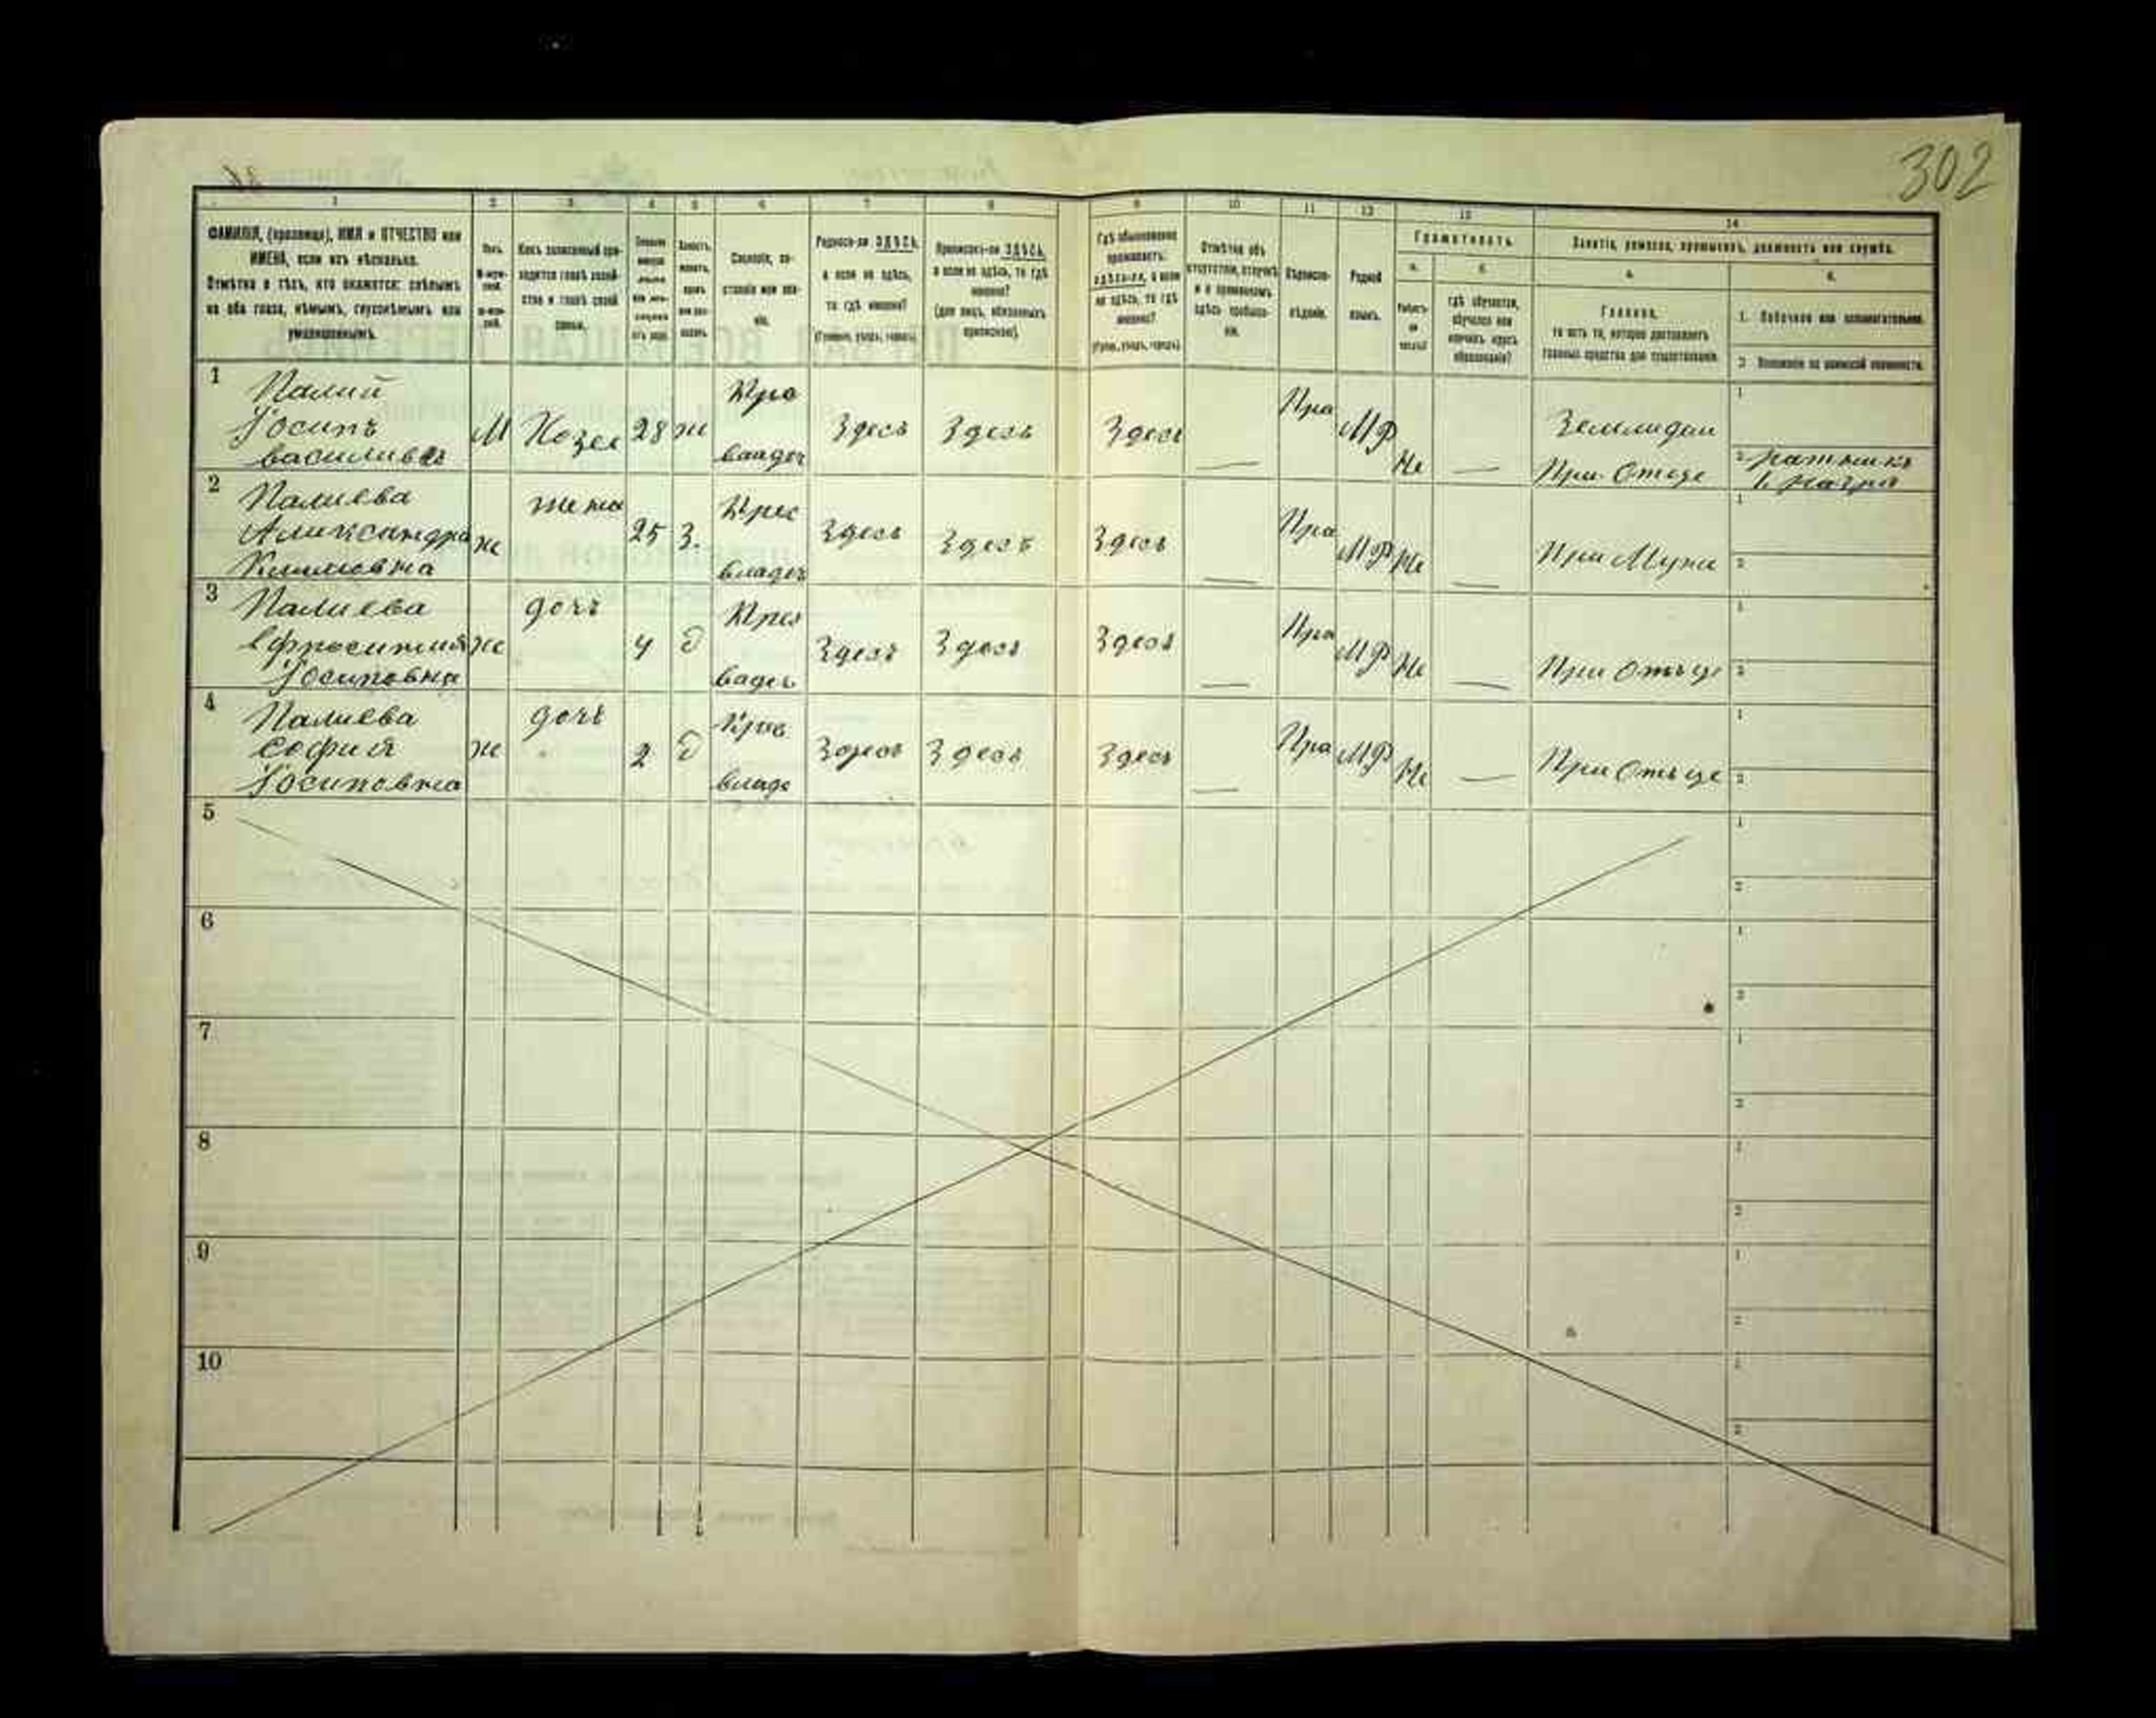 302
1 2 3 4 5 6 7 8 9 10 11 12 13 14
ФАМИЛІЯ, (прозвище), ИМЯ и ОТЧЕСТВО или
ИМЕНА, если ихъ нѣсколько.
Отмѣтка о тѣхъ, кто окажется: слѣпымъ
на оба глаза, нѣмымъ, глухонѣмымъ или
умалишеннымъ.
Полъ.
Какъ записанный при-
ходится главѣ хозяй-
ства и главѣ своей
семьи.
Сословіе, со-
стояніе или зва-
ніе.
Родился-ли ЗДѢСЬ,
а если не здѣсь,
то гдѣ именно?
(Губернія, уѣздъ, городъ).
Приписанъ-ли ЗДѢСЬ,
а если не здѣсь, то гдѣ
именно?
(для лицъ, обязанныхъ
припискою).
Гдѣ обыкновенно
проживаетъ:
здѣсь-ли, а если
не здѣсь, то гдѣ
именно?
(Губ., уѣздъ, городъ).
Отмѣтка объ
отсутствіи, отлучкѣ
и о временномъ
здѣсь пребыва-
ніи.
Вѣроиспо-
вѣданіе.
Родной
языкъ.
Грамотность.
а. б.
Умѣетъ-
ли
читать?
гдѣ обучается,
обучался или
кончилъ курсъ
образованія?
Занятіе, ремесло, промыселъ, должность или служба.
а. б.
Главное,
то есть то, которое доставляетъ
главныя средства для существованія.
1. Побочное или вспомогательное.
2. Положеніе по воинской повинности.
1 Палий
Іосипъ
василивъ
М Хозе 28 ж Кре
владеч
Здесь Здесь Здесь — Пра МР Не —
Земледел
При Отце
1
2 ратникъ
1 разра
2 Палиева
Александра
Климовна
ж жена 25 З. Крес
владеч
Здесь Здесь Здесь — Пра МР Не — При Мужи
1
2
3 Палиева
Ефросиния
Іосиповна
ж дочь 4 д Крес
владе
Здесь Здесь Здесь — Пра МР Не — При Отьце
1
2
4 Палиева
София
Іосиповна
ж дочь 2 д Крес
владе
Здесь Здесь Здесь — Пра МР Не — При Отьце
1
2
5
1
2
6
1
2
7
1
2
8
1
2
9
1
2
10
1
2